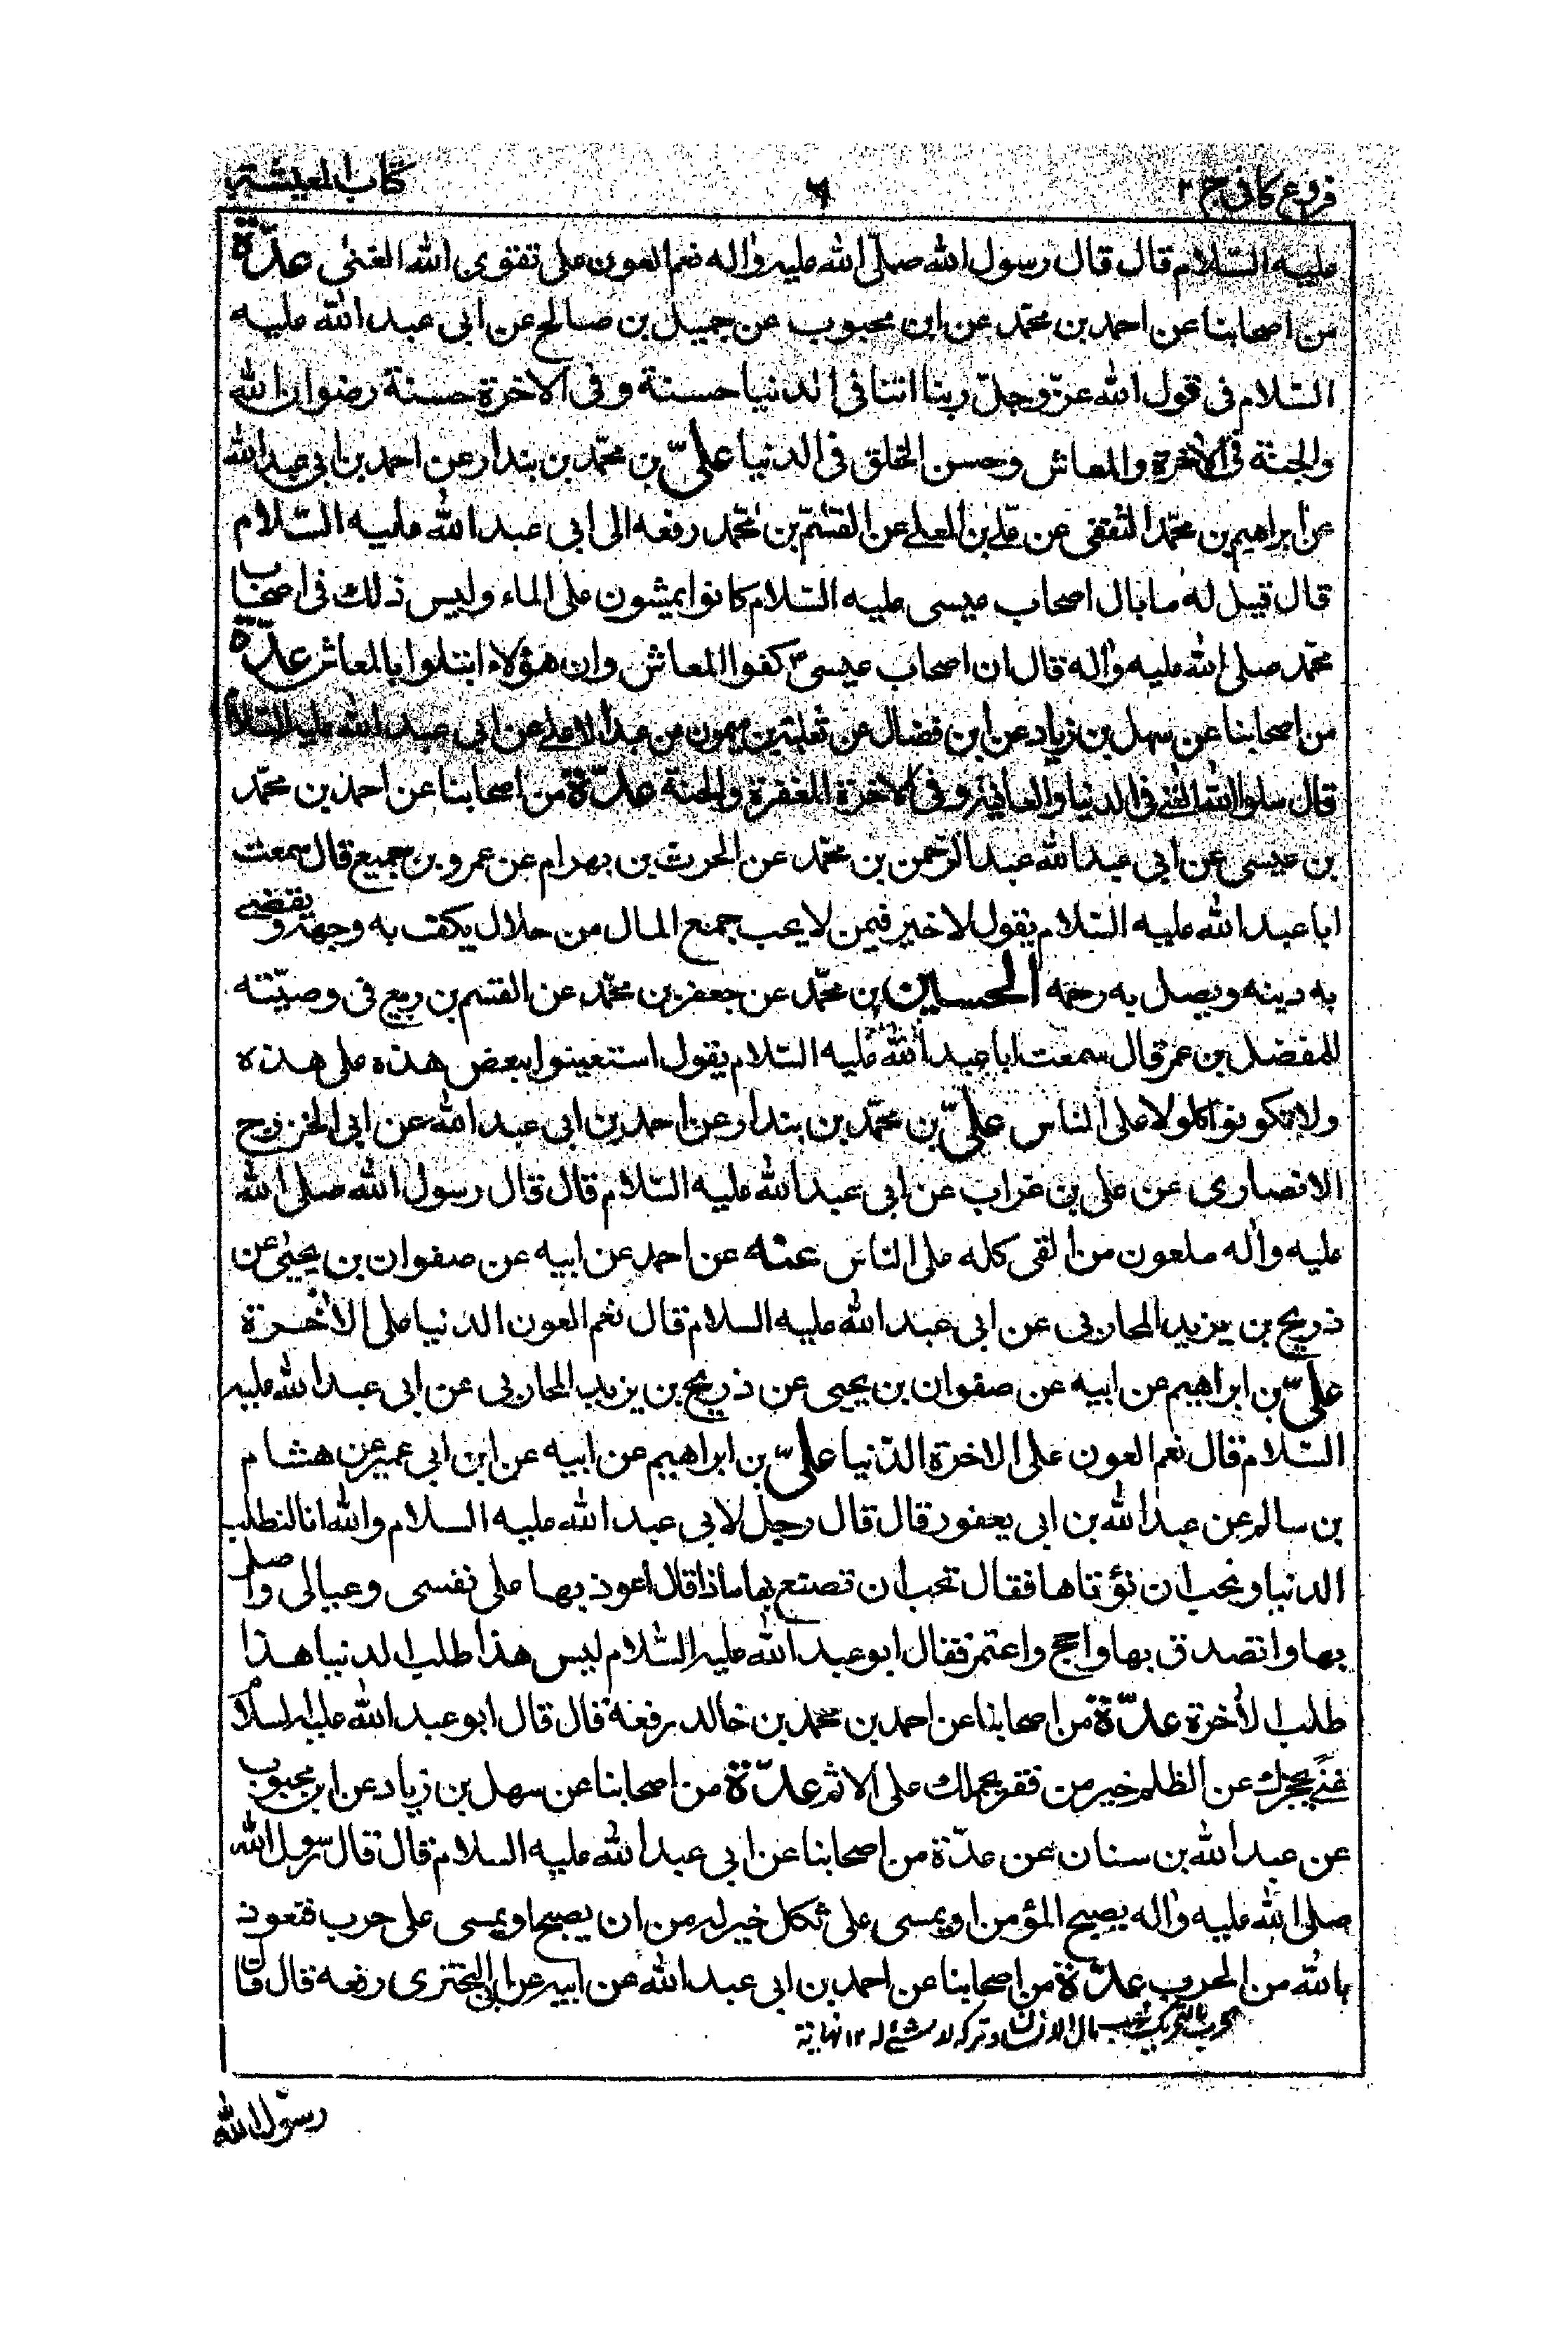 فروع كافى ج ٢
٦
كتاب المعيشة
عليه السّلام قال قال رسول الله صلّى الله عليه واله نعم العون على تقوى الله الغنى عدّة
من اصحابنا عن احمد بن محمّد عن ابن محبوب عن جميل بن صالح عن ابى عبد الله عليه
السّلام فى قول الله عزّ وجلّ ربنا اتنا فى الدنيا حسنة و فى الاخرة حسنة رضوان الله
والجنة فى الاخرة والمعاش وحسن الخلق فى الدنيا علىّ بن محمّد بن بندار عن احمد بن ابى عبد الله
عن ابراهيم بن محمّد الثقفى عن على بن المعلى عن القسم بن محمّد رفعه الى ابى عبد الله عليه السّلام
قال قيل له ما بال اصحاب عيسى عليه السّلام كانوا يمشون على الماء وليس ذلك فى اصحاب
محمّد صلى الله عليه واله قال ان اصحاب عيسىٰ كفوا المعاش وان هؤلاء ابتلوا بالمعاش عدّة
من اصحابنا عن سهل بن زياد عن ابن فضال عن ثعلبة بن ميمون عن عبد الاعلى عن ابى عبد الله عليه السّلام
قال سلوا الله الغنى فى الدنيا والعافية و فى الاخرة المغفرة والجنة عدّة من اصحابنا عن احمد بن محمّد
بن عيسى عن ابى عبد الله عبد الرّحمن بن محمّد عن الحرث بن بهرام عن عمرو بن جميع قال سمعت
ابا عبد الله عليه السّلام يقول لا خير فيمن لا يحب جمع المال من حلال يكف به وجهه و يقضى
به دينه ويصل به رحمه الحسين بن محمّد عن جعفر بن محمّد عن القسم بن ربيع فى وصيّته
للمفضل بن عمر قال سمعت ابا عبد الله عليه السّلام يقول استعينوا ببعض هذه على هذه
ولا تكونوا كلولا على الناس علىّ بن محمّد بن بندار عن احمد بن ابى عبد الله عن ابى الخزرج
الانصارى عن على بن غراب عن ابى عبد الله عليه السّلام قال قال رسول الله صلى الله
عليه واله ملعون من القى كله على الناس عنه عن احمد عن ابيه عن صفوان بن يحيىٰ عن
ذريح بن يزيد المحاربى عن ابى عبد الله عليه السلام قال نعم العون الدنيا على الاخرة
علىّ بن ابراهيم عن ابيه عن صفوان بن يحيى عن ذريح بن يزيد المحاربى عن ابى عبد الله عليه
السّلام قال نعم العون على الاخرة الدّنيا علىّ بن ابراهيم عن ابيه عن ابن ابى عمير عن هشام
بن سالم عن عبد الله بن ابى يعفور قال قال رجل لابى عبد الله عليه السلام والله انا لنطلب
الدنيا ونحب ان نؤتاها فقال تحب ان تصنع بها ماذا قال اعود بها على نفسى وعيالى واصل
بها واتصدق بها واحج واعتمر فقال ابو عبد الله عليه السّلام ليس هذا طلب الدنيا هذا
طلب الأخرة عدّة من اصحابنا عن احمد بن محمد بن خالد رفعه قال قال ابو عبد الله عليه السلام
غنى يحجزك عن الظلم خير من فقر يحملك على الاثم عدّة من اصحابنا عن سهل بن زياد عن ابن محبوب
عن عبد الله بن سنان عن عدّة من اصحابنا عن ابى عبد الله عليه السلام قال قال رسول الله
صلى الله عليه واله يصبح المؤمن او يمسى على ثكل خير له من ان يصبح او يمسى على حرب فنعوذ
بالله من الحرب عدّة من اصحابنا عن احمد بن ابى عبد الله عن ابيه عن ابى البخترى رفعه قال قال
الحرب بالتحريك نهب مال الانسان وتركه لا شئ له ١٢ نهاية
رسول الله